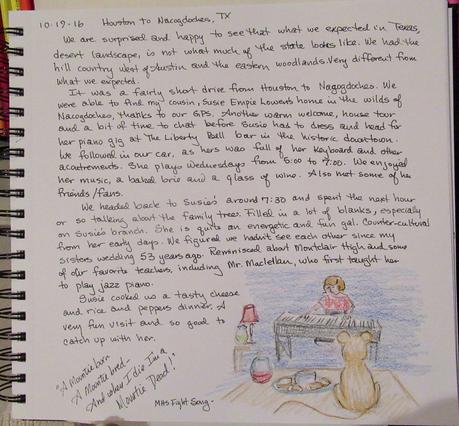 10-19-16 Houston to Nacogdoches, TX
We are surprised and happy to see that what we expected in Texas,
desert landscape, is not what much of the state looks like. We had the
hill country west of Austin and the eastern woodlands. Very different from
what we expected.
It was a fairly short drive from Houston to Nagogdoches. We
were able to find my cousin, Susie Empie Lowens home in the wilds of
Nacogdoches, thanks to our GPS. Another warm welcome, house tour
and a bit of time to chat before Susie has to dress and head for
her piano gig at The Liberty Bell bar in the historic downtown.
We followed in our car, as hers was full of her keyboard and other
acoutrements. She plays Wednesdays from 5:00 to 7:00. We enjoyed
her music, a baked brie and a glass of wine. Also met some of her
friends/fans.
We headed back to Susie's around 7:30 and spent the next hour
or so talking about the family tree. Filled in a lot of blanks, especially
on Susie's branch. She is quite an energetic and fun gal. Counter-cultural
from her early days. We figured we hadn't seen each other since my
sisters wedding 53 years ago. Reminisced about Montclair High and some
of our favorite teachers, including Mr. Maclellan, who first taught her
to play jazz piano.
Susie cooked us a tasty cheese
and rice and peppers dinner. A
very fun visit and so good to
catch up with her.
"A Mountie born
A Mountie bred-
And when I die I'm a
Mountie Dead!"
MHS Fight Song-